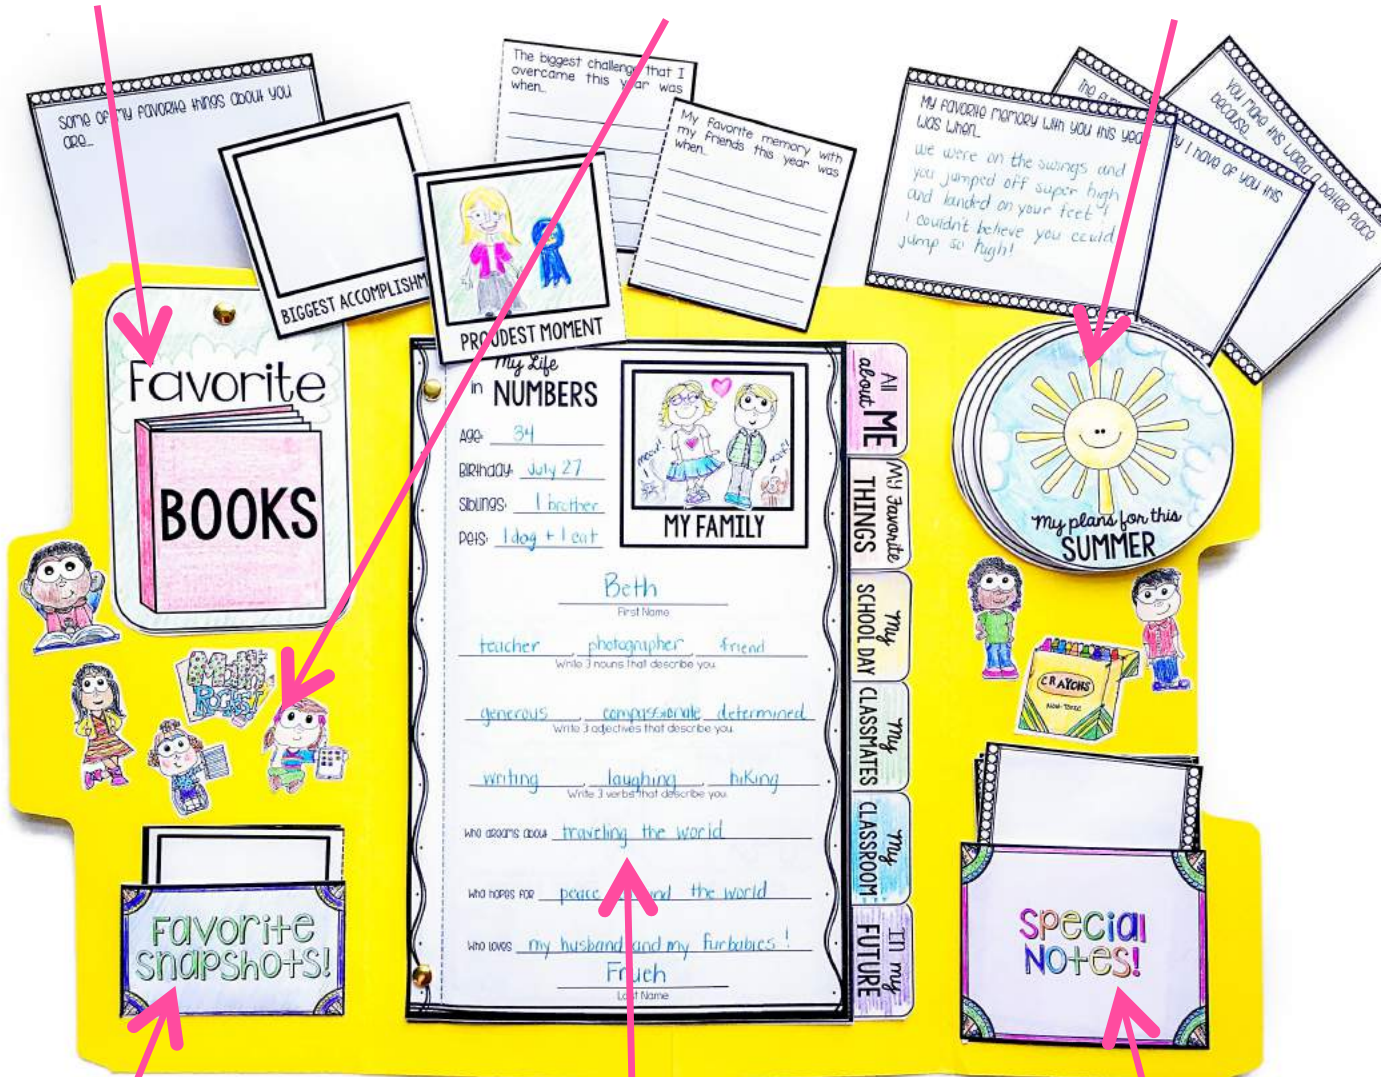 Some of my favorite things about you
are...
BIGGEST ACCOMPLISHM
PROUDEST MOMENT
The biggest challenge that I
overcame this year was
when...
My favorite memory with
my friends this year was
when...
My favorite memory with you this yea
was when...
we were on the swings and
you jumped off super high
and landed on your feet!
I couldn't believe you could
jump so high!
y I have of you this
You make this world a better place
because...
Favorite
BOOKS
Math
Rocks!
Favorite
Snapshots!
My Life
in NUMBERS
Age: 34
Birthday: July 27
Siblings: 1 brother
Pets: 1 dog + 1 cat
meow!
woof!
MY FAMILY
Beth
First Name
teacher, photographer, friend
Write 3 nouns that describe you.
generous, compassionate, determined
Write 3 adjectives that describe you.
writing, laughing, hiking
Write 3 verbs that describe you.
Who dreams about traveling the world
Who hopes for peace the world
Who loves my husband and my furbabies!
Frueh
Last Name
All about ME
My Favorite THINGS
My SCHOOL DAY
My CLASSMATES
My CLASSROOM
In my FUTURE
My plans for this
SUMMER
CRAYONS
Non-Toxic
Special
Notes!